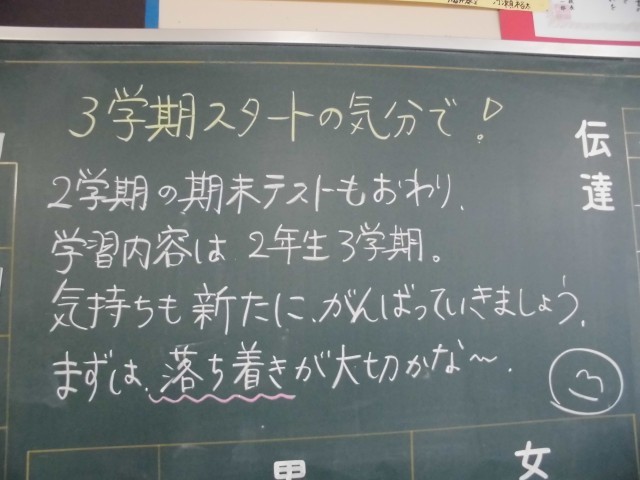 3学期スタートの気分で!
伝達
2学期の期末テストもおわり、
学習内容は 2年生3学期。
気持ちも新たに、がんばっていきましょう。
まずは、落ち着きが大切かな〜。
男
女